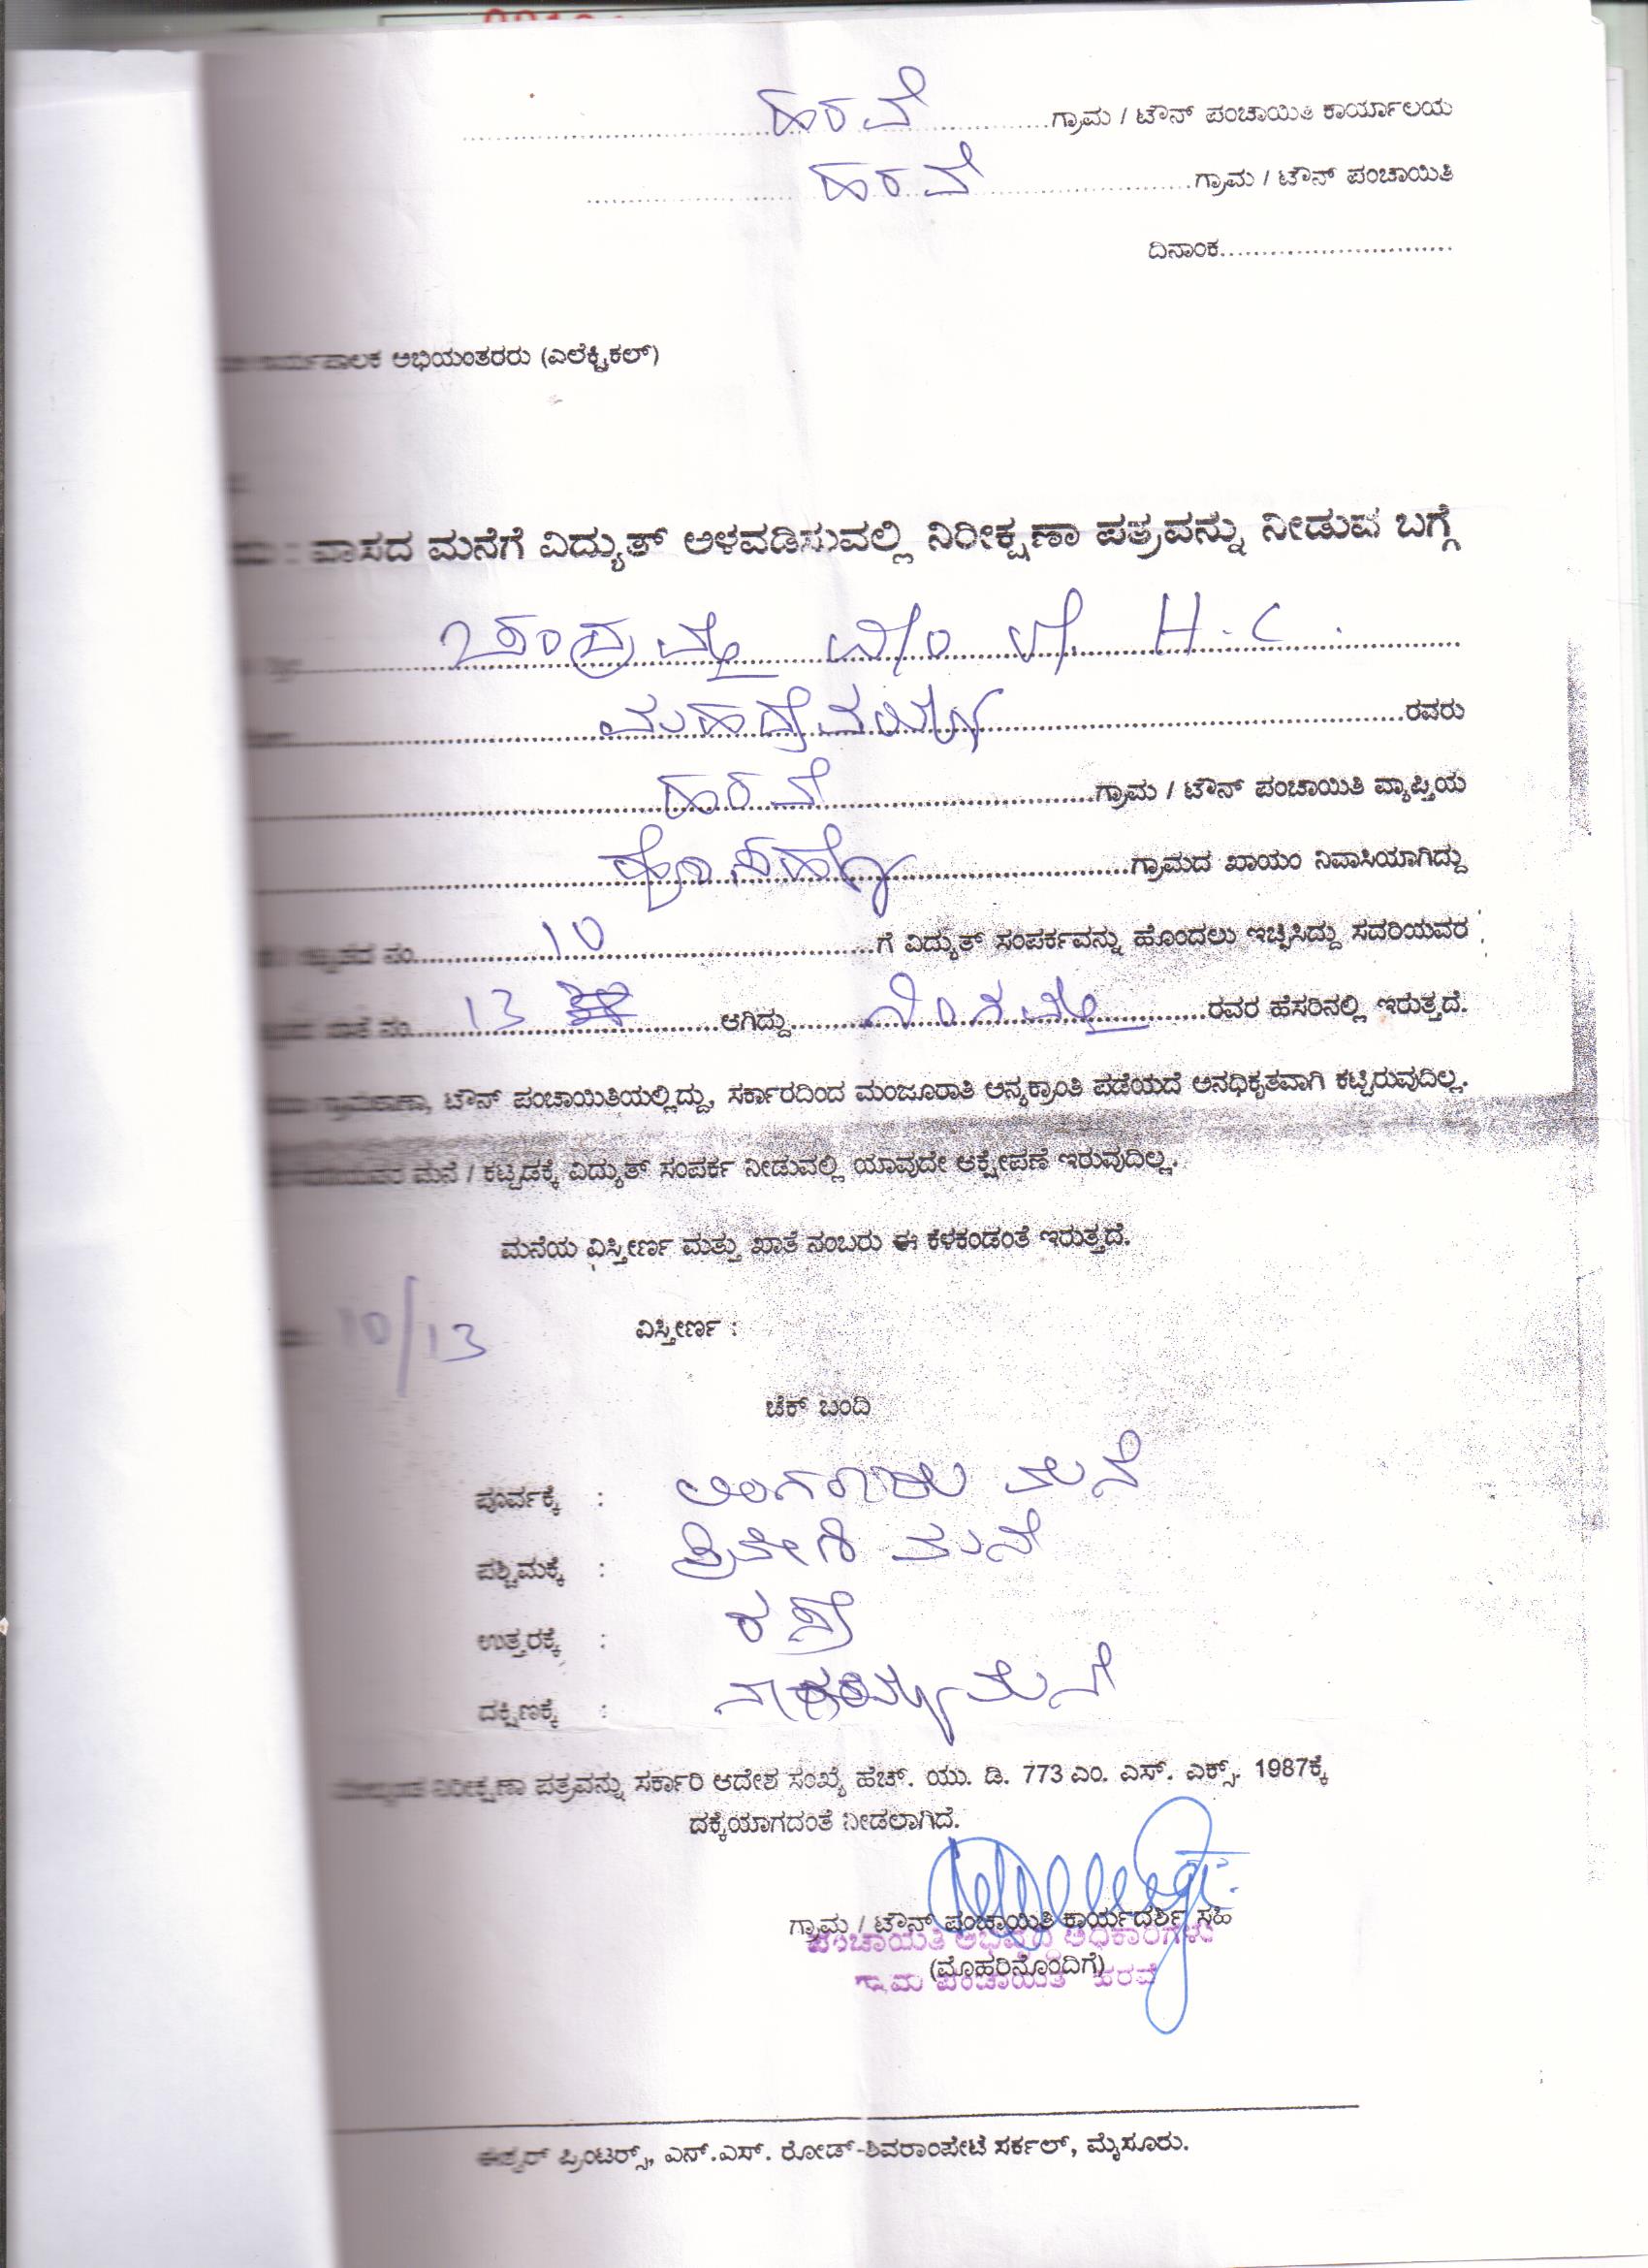 ಹರವೆ ಗ್ರಾಮ / ಟೌನ್ ಪಂಚಾಯಿತಿ ಕಾರ್ಯಾಲಯ
ಹರವೆ ಗ್ರಾಮ / ಟೌನ್ ಪಂಚಾಯಿತಿ
ದಿನಾಂಕ
ಅಭಿಯಂತರರು (ಎಲೆಕ್ಟ್ರಿಕಲ್)
: ವಾಸದ ಮನೆಗೆ ವಿದ್ಯುತ್ ಅಳವಡಿಸುವಲ್ಲಿ ನಿರೀಕ್ಷಣಾ ಪತ್ರವನ್ನು ನೀಡುವ ಬಗ್ಗೆ
ಚಂದ್ರಮ್ಮ H.C.
ಮಹದೇವಯ್ಯ ರವರು
ಹರವೆ ಗ್ರಾಮ / ಟೌನ್ ಪಂಚಾಯಿತಿ ವ್ಯಾಪ್ತಿಯ
ಗ್ರಾಮದ ಖಾಯಂ ನಿವಾಸಿಯಾಗಿದ್ದು
ನಂ. 10 ಗೆ ವಿದ್ಯುತ್ ಸಂಪರ್ಕವನ್ನು ಹೊಂದಲು ಇಚ್ಛಿಸಿದ್ದು ಸದರಿಯವರ
ಖಾತೆ ನಂ. 13 ಆಗಿದ್ದು ರವರ ಹೆಸರಿನಲ್ಲಿ ಇರುತ್ತದೆ.
ಗ್ರಾಮಠಾಣಾ, ಟೌನ್ ಪಂಚಾಯಿತಿಯಲ್ಲಿದ್ದು, ಸರ್ಕಾರದಿಂದ ಮಂಜೂರಾತಿ ಅನ್ಯಕ್ರಾಂತಿ ಪಡೆಯದೆ ಅನಧಿಕೃತವಾಗಿ ಕಟ್ಟಿರುವುದಿಲ್ಲ.
ಮನೆ / ಕಟ್ಟಡಕ್ಕೆ ವಿದ್ಯುತ್ ಸಂಪರ್ಕ ನೀಡುವಲ್ಲಿ ಯಾವುದೇ ಆಕ್ಷೇಪಣೆ ಇರುವುದಿಲ್ಲ.
ಮನೆಯ ವಿಸ್ತೀರ್ಣ ಮತ್ತು ಖಾತೆ ನಂಬರು ಈ ಕೆಳಕಂಡಂತೆ ಇರುತ್ತದೆ.
10/13 ವಿಸ್ತೀರ್ಣ :
ಚೆಕ್ ಬಂದಿ
ಪೂರ್ವಕ್ಕೆ : ಮನೆ
ಪಶ್ಚಿಮಕ್ಕೆ : ಮನೆ
ಉತ್ತರಕ್ಕೆ :
ದಕ್ಷಿಣಕ್ಕೆ : ಮನೆ
ನಿರೀಕ್ಷಣಾ ಪತ್ರವನ್ನು ಸರ್ಕಾರಿ ಆದೇಶ ಸಂಖ್ಯೆ ಹೆಚ್. ಯು. ಡಿ. 773 ಎಂ. ಎಸ್. ಎಕ್ಸ್. 1987ಕ್ಕೆ
ದಕ್ಕೆಯಾಗದಂತೆ ನೀಡಲಾಗಿದೆ.
ಗ್ರಾಮ / ಟೌನ್ ಪಂಚಾಯಿತಿ ಕಾರ್ಯದರ್ಶಿ ಸಹಿ
ಪಂಚಾಯತಿ ಅಭಿವೃದ್ಧಿ ಅಧಿಕಾರಿಗಳು
(ಮೊಹರಿನೊಂದಿಗೆ)
ಗ್ರಾಮ ಪಂಚಾಯಿತಿ ಹರವೆ
ಈಶ್ವರ್ ಪ್ರಿಂಟರ್ಸ್, ಎಸ್.ಎಸ್. ರೋಡ್-ಶಿವರಾಂಪೇಟೆ ಸರ್ಕಲ್, ಮೈಸೂರು.